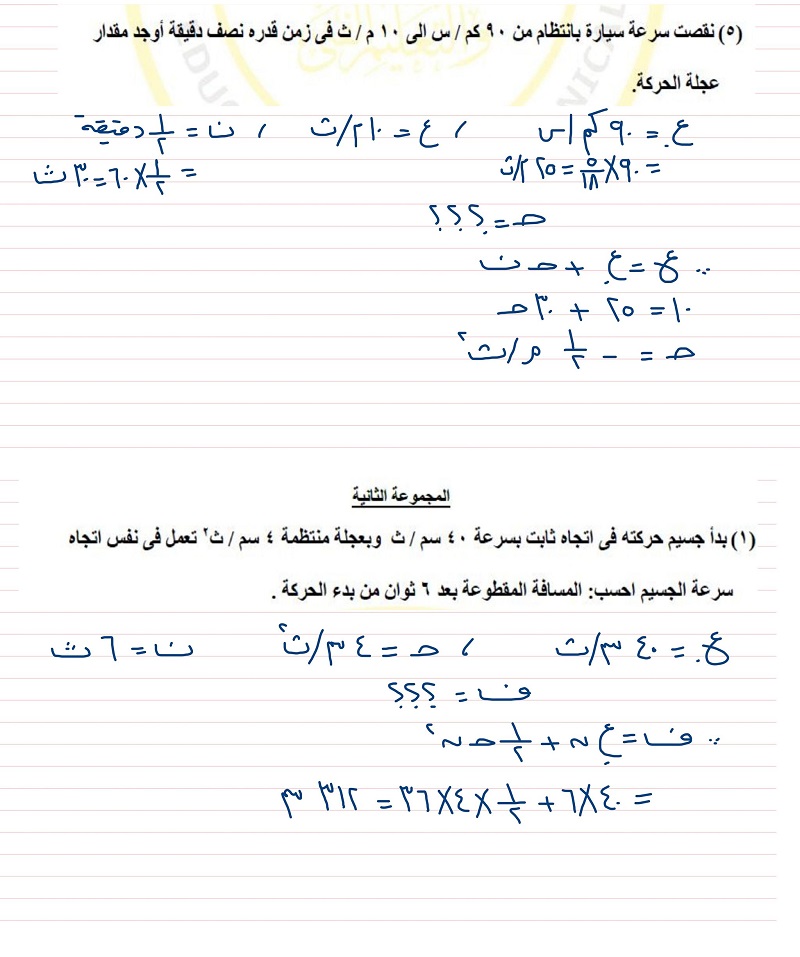 (٥) نقصت سرعة سيارة بانتظام من ٩٠ كم / س الى ١٠ م / ث فى زمن قدره نصف دقيقة أوجد مقدار
عجلة الحركة.
ع. = ٩٠ كم/س ، ع = ١٠ م/ث ، ن = ١/٢ دقيقة
= ٩٠ × ٥/١٨ = ٢٥ م/ث = ١/٢ × ٦٠ = ٣٠ ث
حـ = ؟؟؟
∵ ع = ع. + حـ ن
١٠ = ٢٥ + ٣٠ حـ
حـ = - ١/٢ م/ث٢
المجموعة الثانية
(١) بدأ جسيم حركته فى اتجاه ثابت بسرعة ٤٠ سم / ث وبعجلة منتظمة ٤ سم / ث٢ تعمل فى نفس اتجاه
سرعة الجسيم احسب: المسافة المقطوعة بعد ٦ ثوان من بدء الحركة .
ع. = ٤٠ سم/ث ، حـ = ٤ سم/ث٢ ن = ٦ ث
ف = ؟؟؟
∵ ف = ع. ن + ١/٢ حـ ن٢
= ٤٠ × ٦ + ١/٢ × ٤ × ٣٦ = ٣١٢ سم